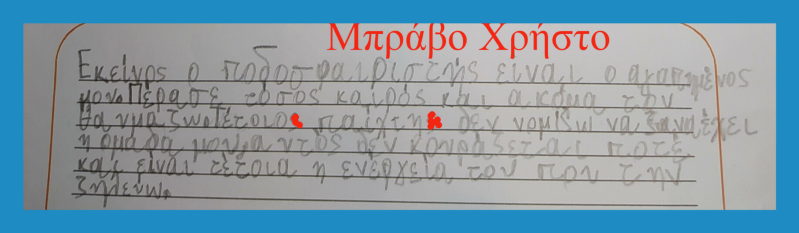 Μπράβο Χρήστο
Εκείνος ο ποδοσφαιριστής είναι ο αγαπημένος
μου. Πέρασε τόσος καιρός και ακόμα τον
θαυμάζω. Τέτοιος παίχτης δεν νομίζω να ξαναέχει
η ομάδα μου. αυτός δεν κουράζεται ποτέ
και είναι τέτοια η ενέργεια του που την
ζηλεύω.